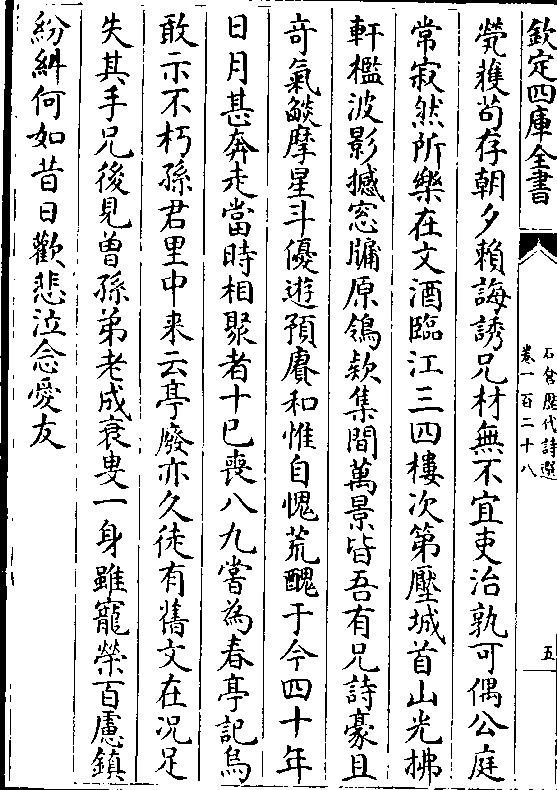 欽定四庫全書
石倉歷代詩選
卷一百二十八
五
煢䕶苟存朝夕賴誨誘兄材無不宜吏治孰可偶公庭
常寂然所樂在文酒臨江三四樓次第壓城首山光拂
軒檻波影撼窓牖原鴒欵集間萬景皆吾有兄詩豪且
竒氣燄摩星斗優遊預賡和惟自愧荒醜于今四十年
日月甚奔走當時相聚者十已喪八九嘗為春亭記烏
敢示不朽孫君里中来云亭廢亦久徒有舊文在况足
失其手兄後見曽孫弟老成衰叟一身雖寵榮百慮鎮
紛糾何如昔日歡悲泣念愛友